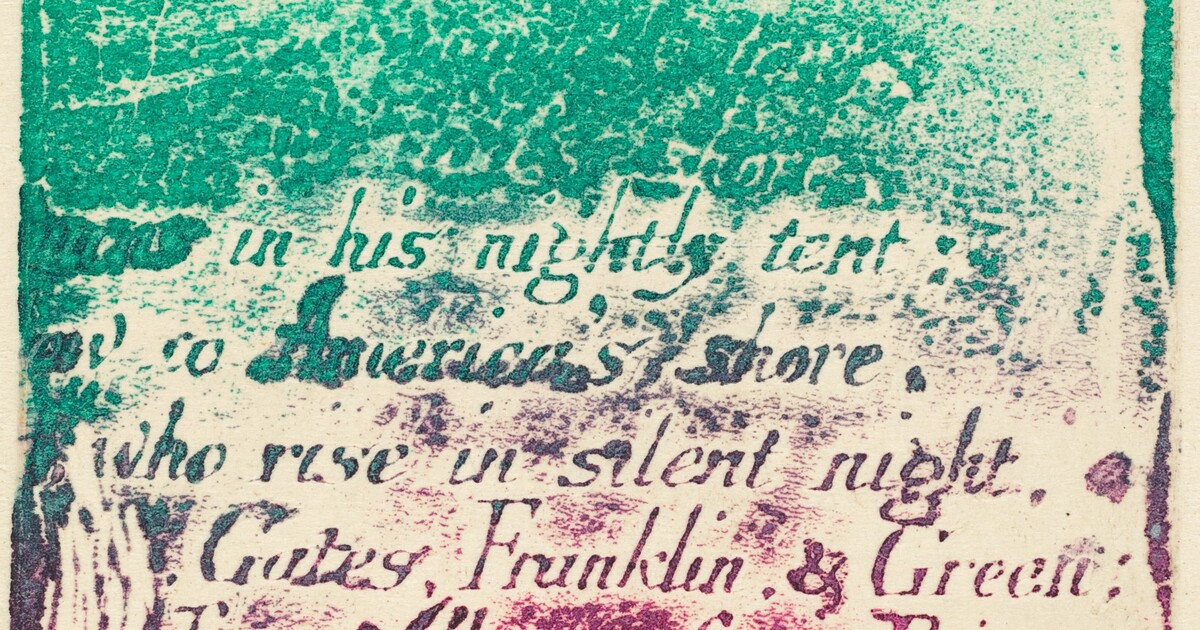 in his nightly tent;
to America's shore,
who rise in silent night,
Gates, Franklin, & Green;